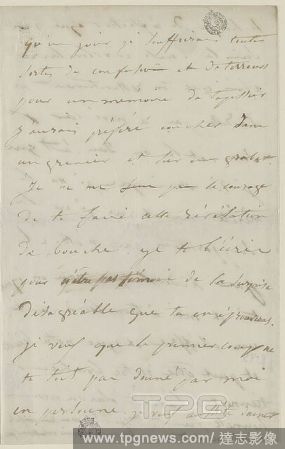 qu'un jour je souffrirai toute
sortes de confusion et de terreurs
pour un memoire de tapissier
J'aurais préféré coucher dans
un grenier et sur un grabat.
Je ne me sens pas le courage
de te faire cette révélation
de bouche et je t'écris
pour de la surprise
désagréable que tu en éprouveras.
je veux que le premier coup ne
te soit pas donné par moi
en personne je veux
TPG
www.tpgnews.com / 達志影像